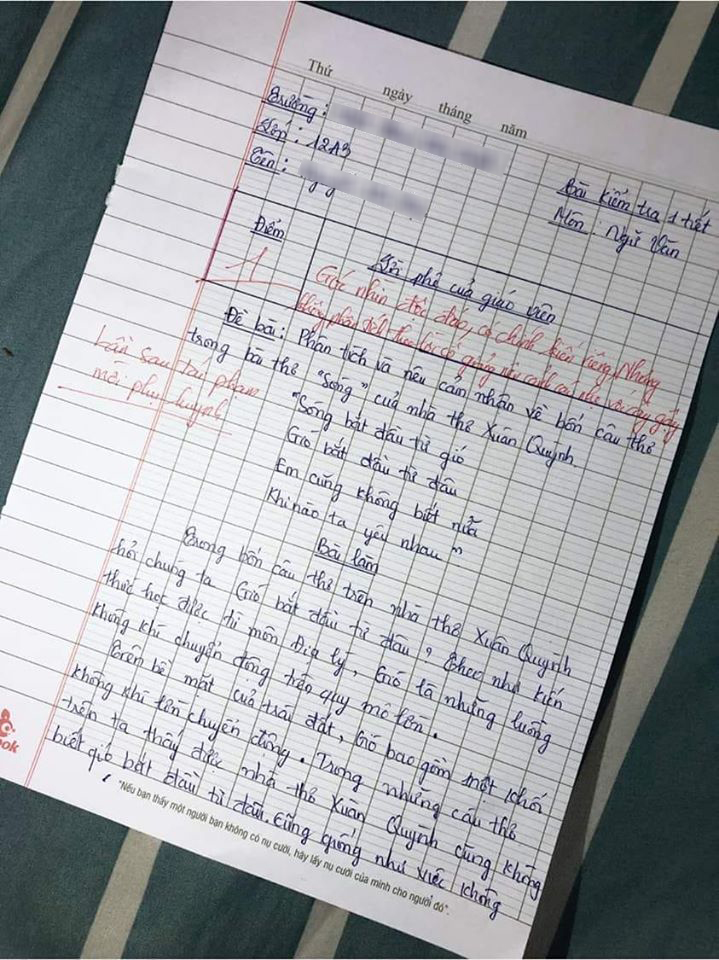 Thứ ngày tháng năm
Trường:
Lớp: 12A3
Tên:
Bài kiểm tra 1 tiết
Môn: Ngữ Văn
Điểm
Lời phê của giáo viên
1
Góc nhìn độc đáo, có chính kiến riêng. Nhưng
không phân tích theo lối cố gắng nêu
Lần sau tái phạm
mời phụ huynh
Đề bài: Phân tích và nêu cảm nhận về bốn câu thơ
trong bài thơ "Sóng" của nhà thơ Xuân Quỳnh.
"Sóng bắt đầu từ gió
Gió bắt đầu từ đâu
Em cũng không biết nữa
Khi nào ta yêu nhau"
Bài làm
Trong bốn câu thơ trên nhà thơ Xuân Quỳnh
hỏi chúng ta Gió bắt đầu từ đâu? Theo như kiến
thức học được từ môn Địa lý, Gió là những luồng
không khí chuyển động trên quy mô lớn.
Trên bề mặt của trái đất, Gió bao gồm một khối
không khí lớn chuyển động. Trong những câu thơ
trên ta thấy được nhà thơ Xuân Quỳnh cũng không
biết gió bắt đầu từ đâu. Cũng giống như việc không
"Nếu bạn thấy một người bạn không có nụ cười, hãy lấy nụ cười của mình cho người đó".
ook